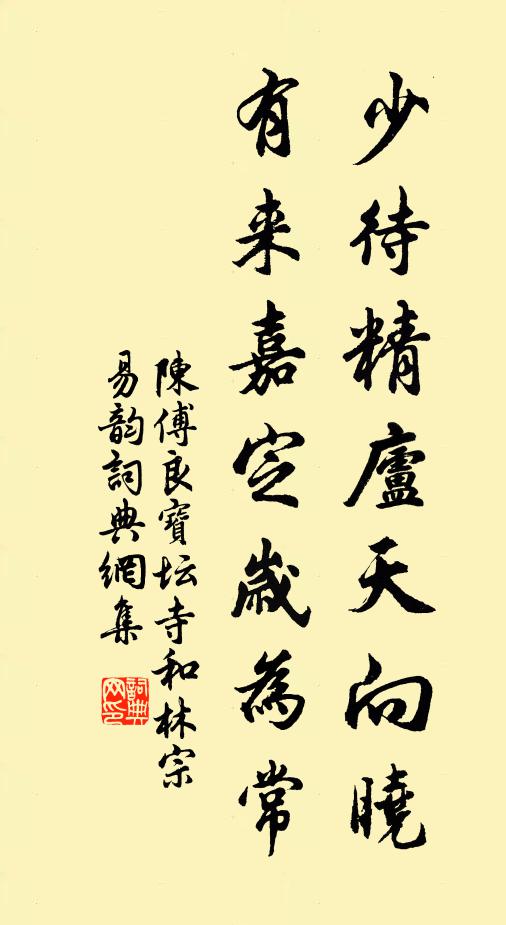 少待精廬天向曉
有来嘉定歲為常
陳傅良寶坛寺和林宗
易韵詞典網集
詞典网印